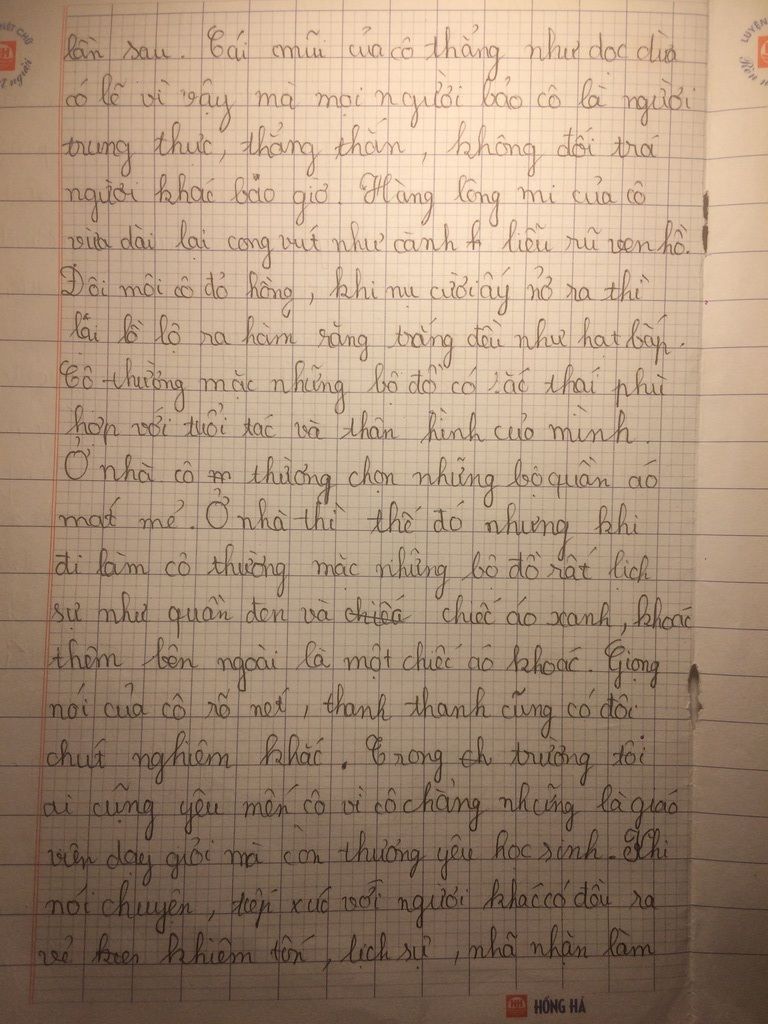 lần sau. Cái mũi của cô thẳng như dọc dừa
có lẽ vì vậy mà mọi người bảo cô là người
trung thực, thẳng thắn, không đối trá
người khác bao giờ. Hàng lông mi của cô
vừa dài lại cong vút như cành liễu rũ ven hồ.
Đôi môi cô đỏ hồng, khi nụ cười ấy nở ra thì
lại lồ lộ ra hàm răng trắng đều như hạt bắp.
Cô thường mặc những bộ đồ có sắc thái phù
hợp với tuổi tác và thân hình của mình.
Ở nhà cô thường chọn những bộ quần áo
mát mẻ. Ở nhà thì thế đó nhưng khi
đi làm cô thường mặc những bộ đồ rất lịch
sự như quần đen và chiếc áo xanh, khoác
thêm bên ngoài là một chiếc áo khoác. Giọng
nói của cô rõ nét, thanh thanh cũng có đôi
chút nghiêm khắc. Trong trường tôi
ai cũng yêu mến cô vì cô chẳng những là giáo
viên dạy giỏi mà còn thương yêu học sinh. Khi
nói chuyện, tiếp xúc với người khác cô đều ra
vẻ khiêm tốn, lịch sự, nhã nhặn làm
HỒNG HÀ